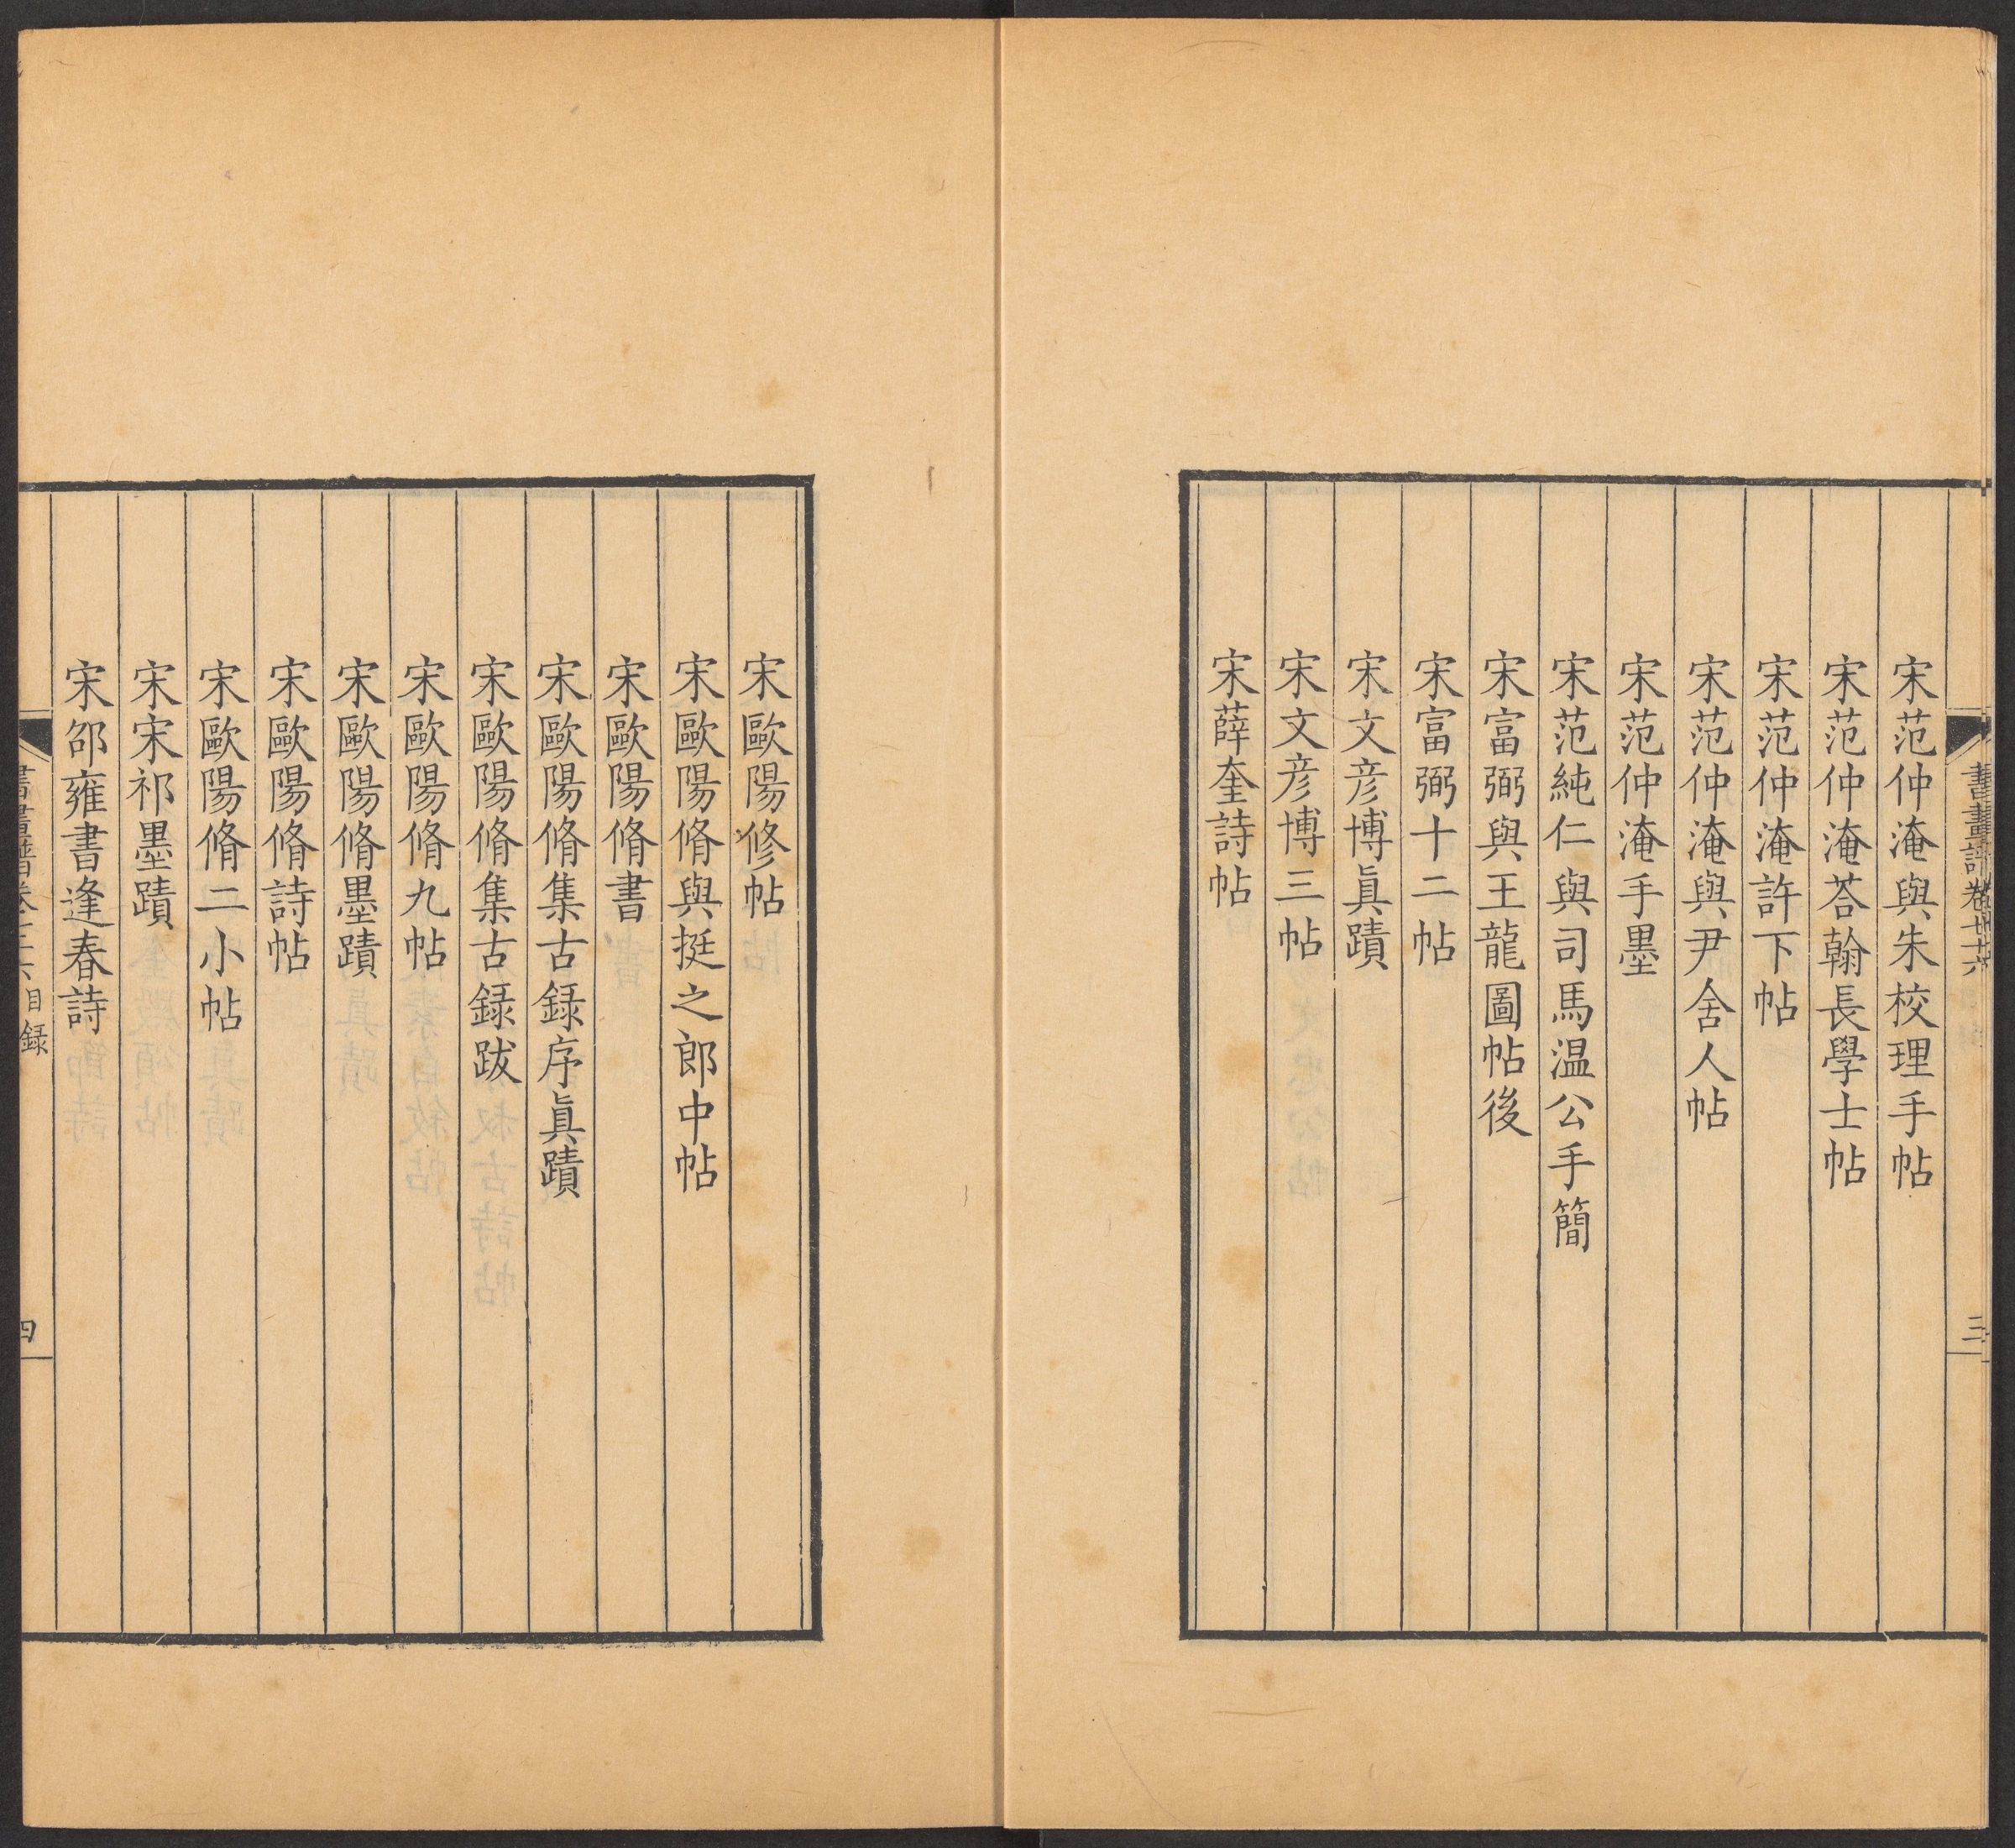 宋范仲淹與朱校理手帖
宋范仲淹荅翰長學士帖
宋范仲淹許下帖
宋范仲淹與尹舍人帖
宋范仲淹手墨
宋范純仁與司馬温公手簡
宋富弼與王龍圖帖後
宋富弼十二帖
宋文彦博眞蹟
宋文彦博三帖
宋薛奎詩帖
三
宋歐陽修帖
宋歐陽脩與挺之郎中帖
宋歐陽脩書
宋歐陽脩集古録序眞蹟
宋歐陽脩集古録跋
宋歐陽脩九帖
宋歐陽脩墨蹟
宋歐陽脩詩帖
宋歐陽脩二小帖
宋宋祁墨蹟
宋邵雍書逢春詩
目録
四